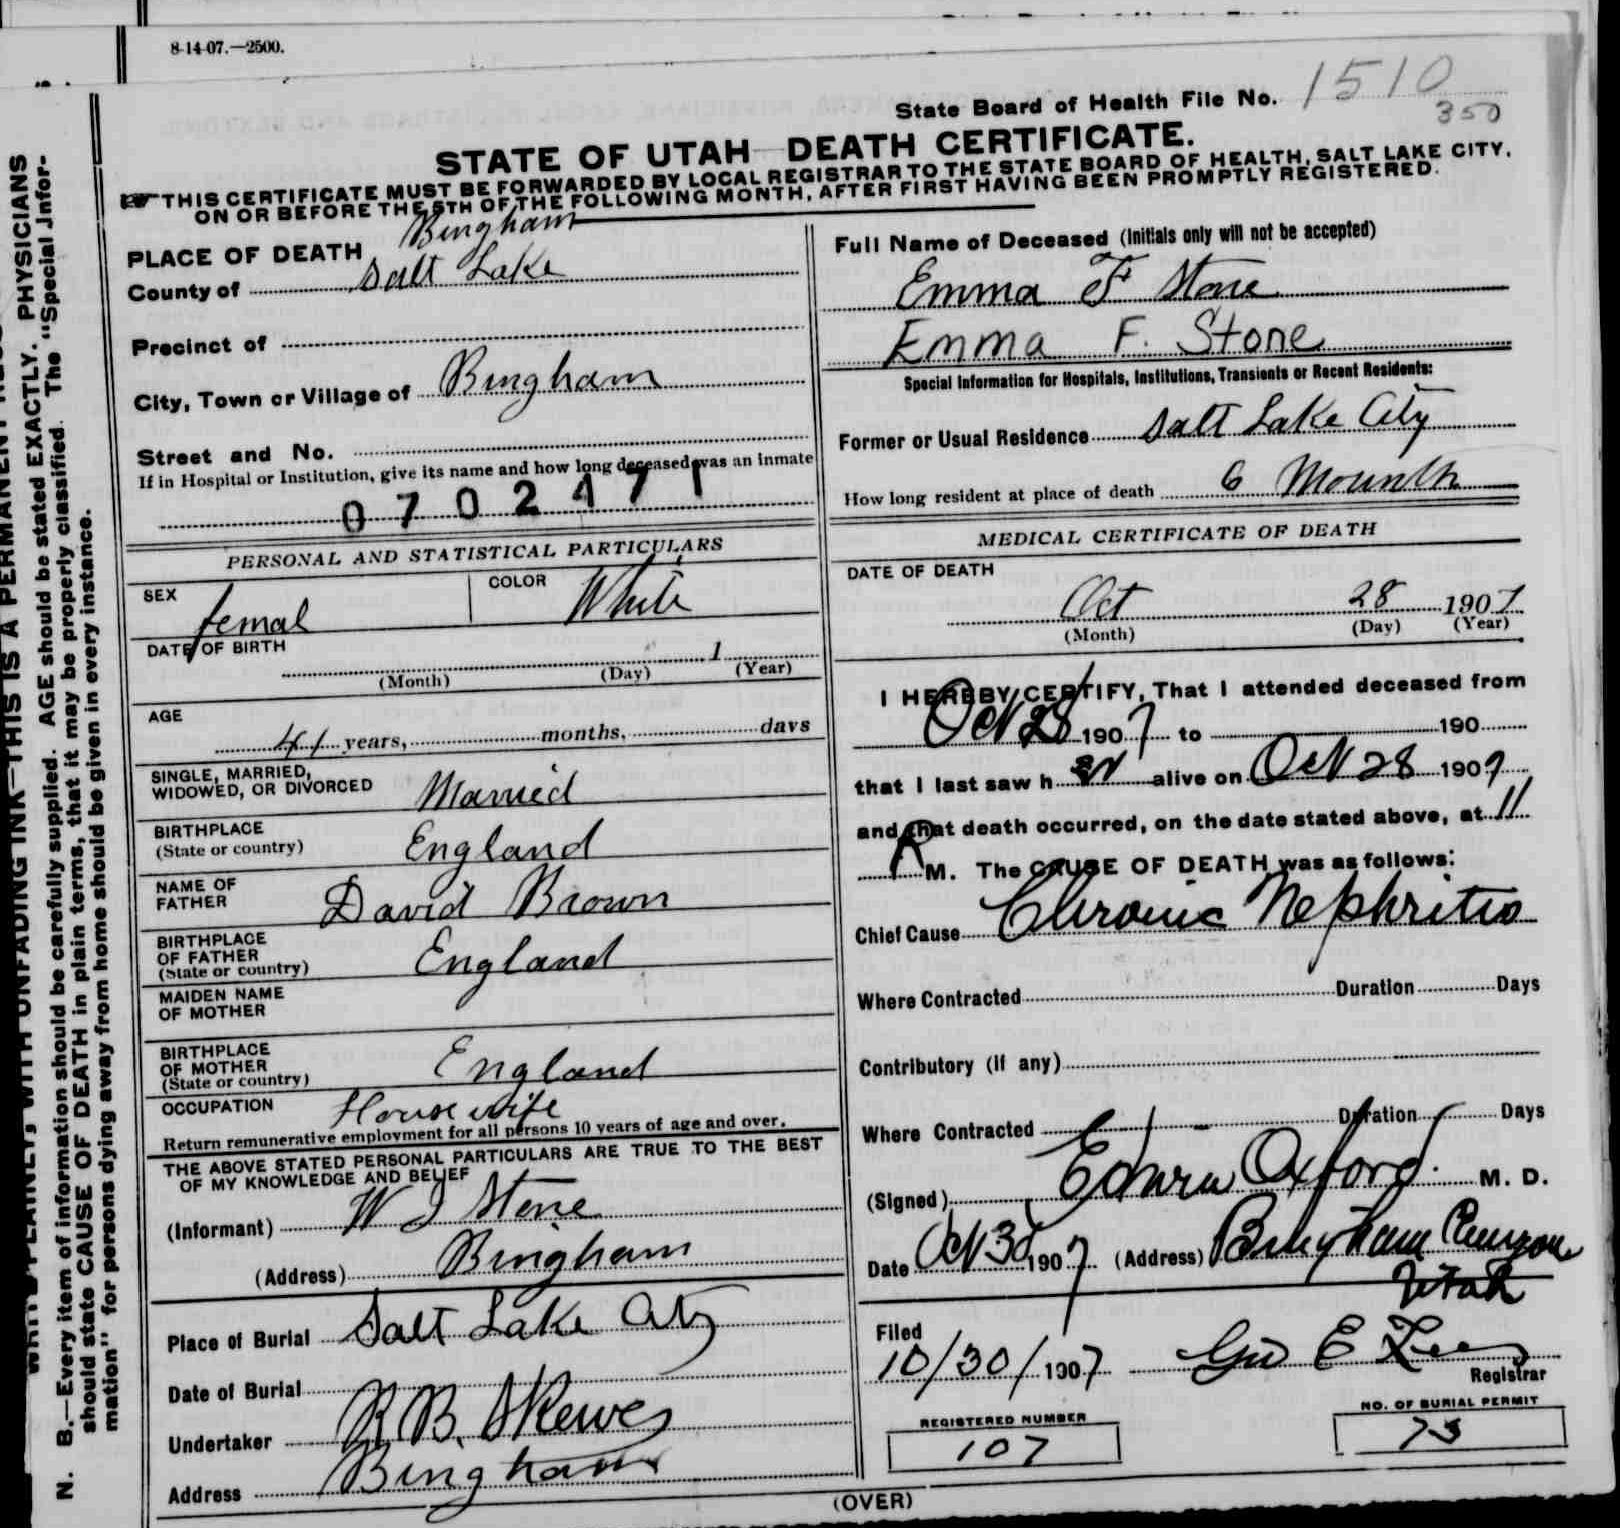 8-14-07.—2500.
State Board of Health File No. 1510
350
STATE OF UTAH—DEATH CERTIFICATE.
THIS CERTIFICATE MUST BE FORWARDED BY LOCAL REGISTRAR TO THE STATE BOARD OF HEALTH, SALT LAKE CITY,
ON OR BEFORE THE 5TH OF THE FOLLOWING MONTH, AFTER FIRST HAVING BEEN PROMPTLY REGISTERED.
Bingham
PLACE OF DEATH
County of Salt Lake
Precinct of
City, Town or Village of Bingham
Street and No.
If in Hospital or Institution, give its name and how long deceased was an inmate
0702471
PERSONAL AND STATISTICAL PARTICULARS
SEX femal COLOR White
DATE OF BIRTH
1
(Month) (Day) (Year)
AGE
41 years, months, days
SINGLE, MARRIED,
WIDOWED, OR DIVORCED Married
BIRTHPLACE
(State or country) England
NAME OF
FATHER David Brown
BIRTHPLACE
OF FATHER
(State or country) England
MAIDEN NAME
OF MOTHER
BIRTHPLACE
OF MOTHER
(State or country) England
OCCUPATION Housewife
Return remunerative employment for all persons 10 years of age and over.
THE ABOVE STATED PERSONAL PARTICULARS ARE TRUE TO THE BEST
OF MY KNOWLEDGE AND BELIEF
(Informant) W J Stone
(Address) Bingham
Place of Burial Salt Lake City
Date of Burial
Undertaker R B. Skewes
Address Bingham
Full Name of Deceased (Initials only will not be accepted)
Emma F Stone
Emma F. Stone
Special Information for Hospitals, Institutions, Transients or Recent Residents:
Former or Usual Residence Salt Lake City
How long resident at place of death 6 Mounth
MEDICAL CERTIFICATE OF DEATH
DATE OF DEATH
Oct 28 1907
(Month) (Day) (Year)
I HEREBY CERTIFY, That I attended deceased from
Oct 28 1907 to 190
that I last saw h er alive on Oct 28 1907
and that death occurred, on the date stated above, at 11
M. The CAUSE OF DEATH was as follows:
Chief Cause Chronic Nephritis
Where Contracted Duration Days
Contributory (if any)
Where Contracted Duration Days
(Signed) Oxford. M. D.
Date Oct 30 1907 (Address) Bingham Canyon
Utah
Filed
10/30/1907 Geo E
Registrar
REGISTERED NUMBER
107
NO. OF BURIAL PERMIT
73
(OVER)
PHYSICIANS
N. B.—Every item of information should be carefully supplied. AGE should be stated EXACTLY. The "Special Infor-
should state CAUSE OF DEATH in plain terms, that it may be properly classified.
mation" for persons dying away from home should be given in every instance.
WITH UNFADING INK—THIS IS A PERMANENT